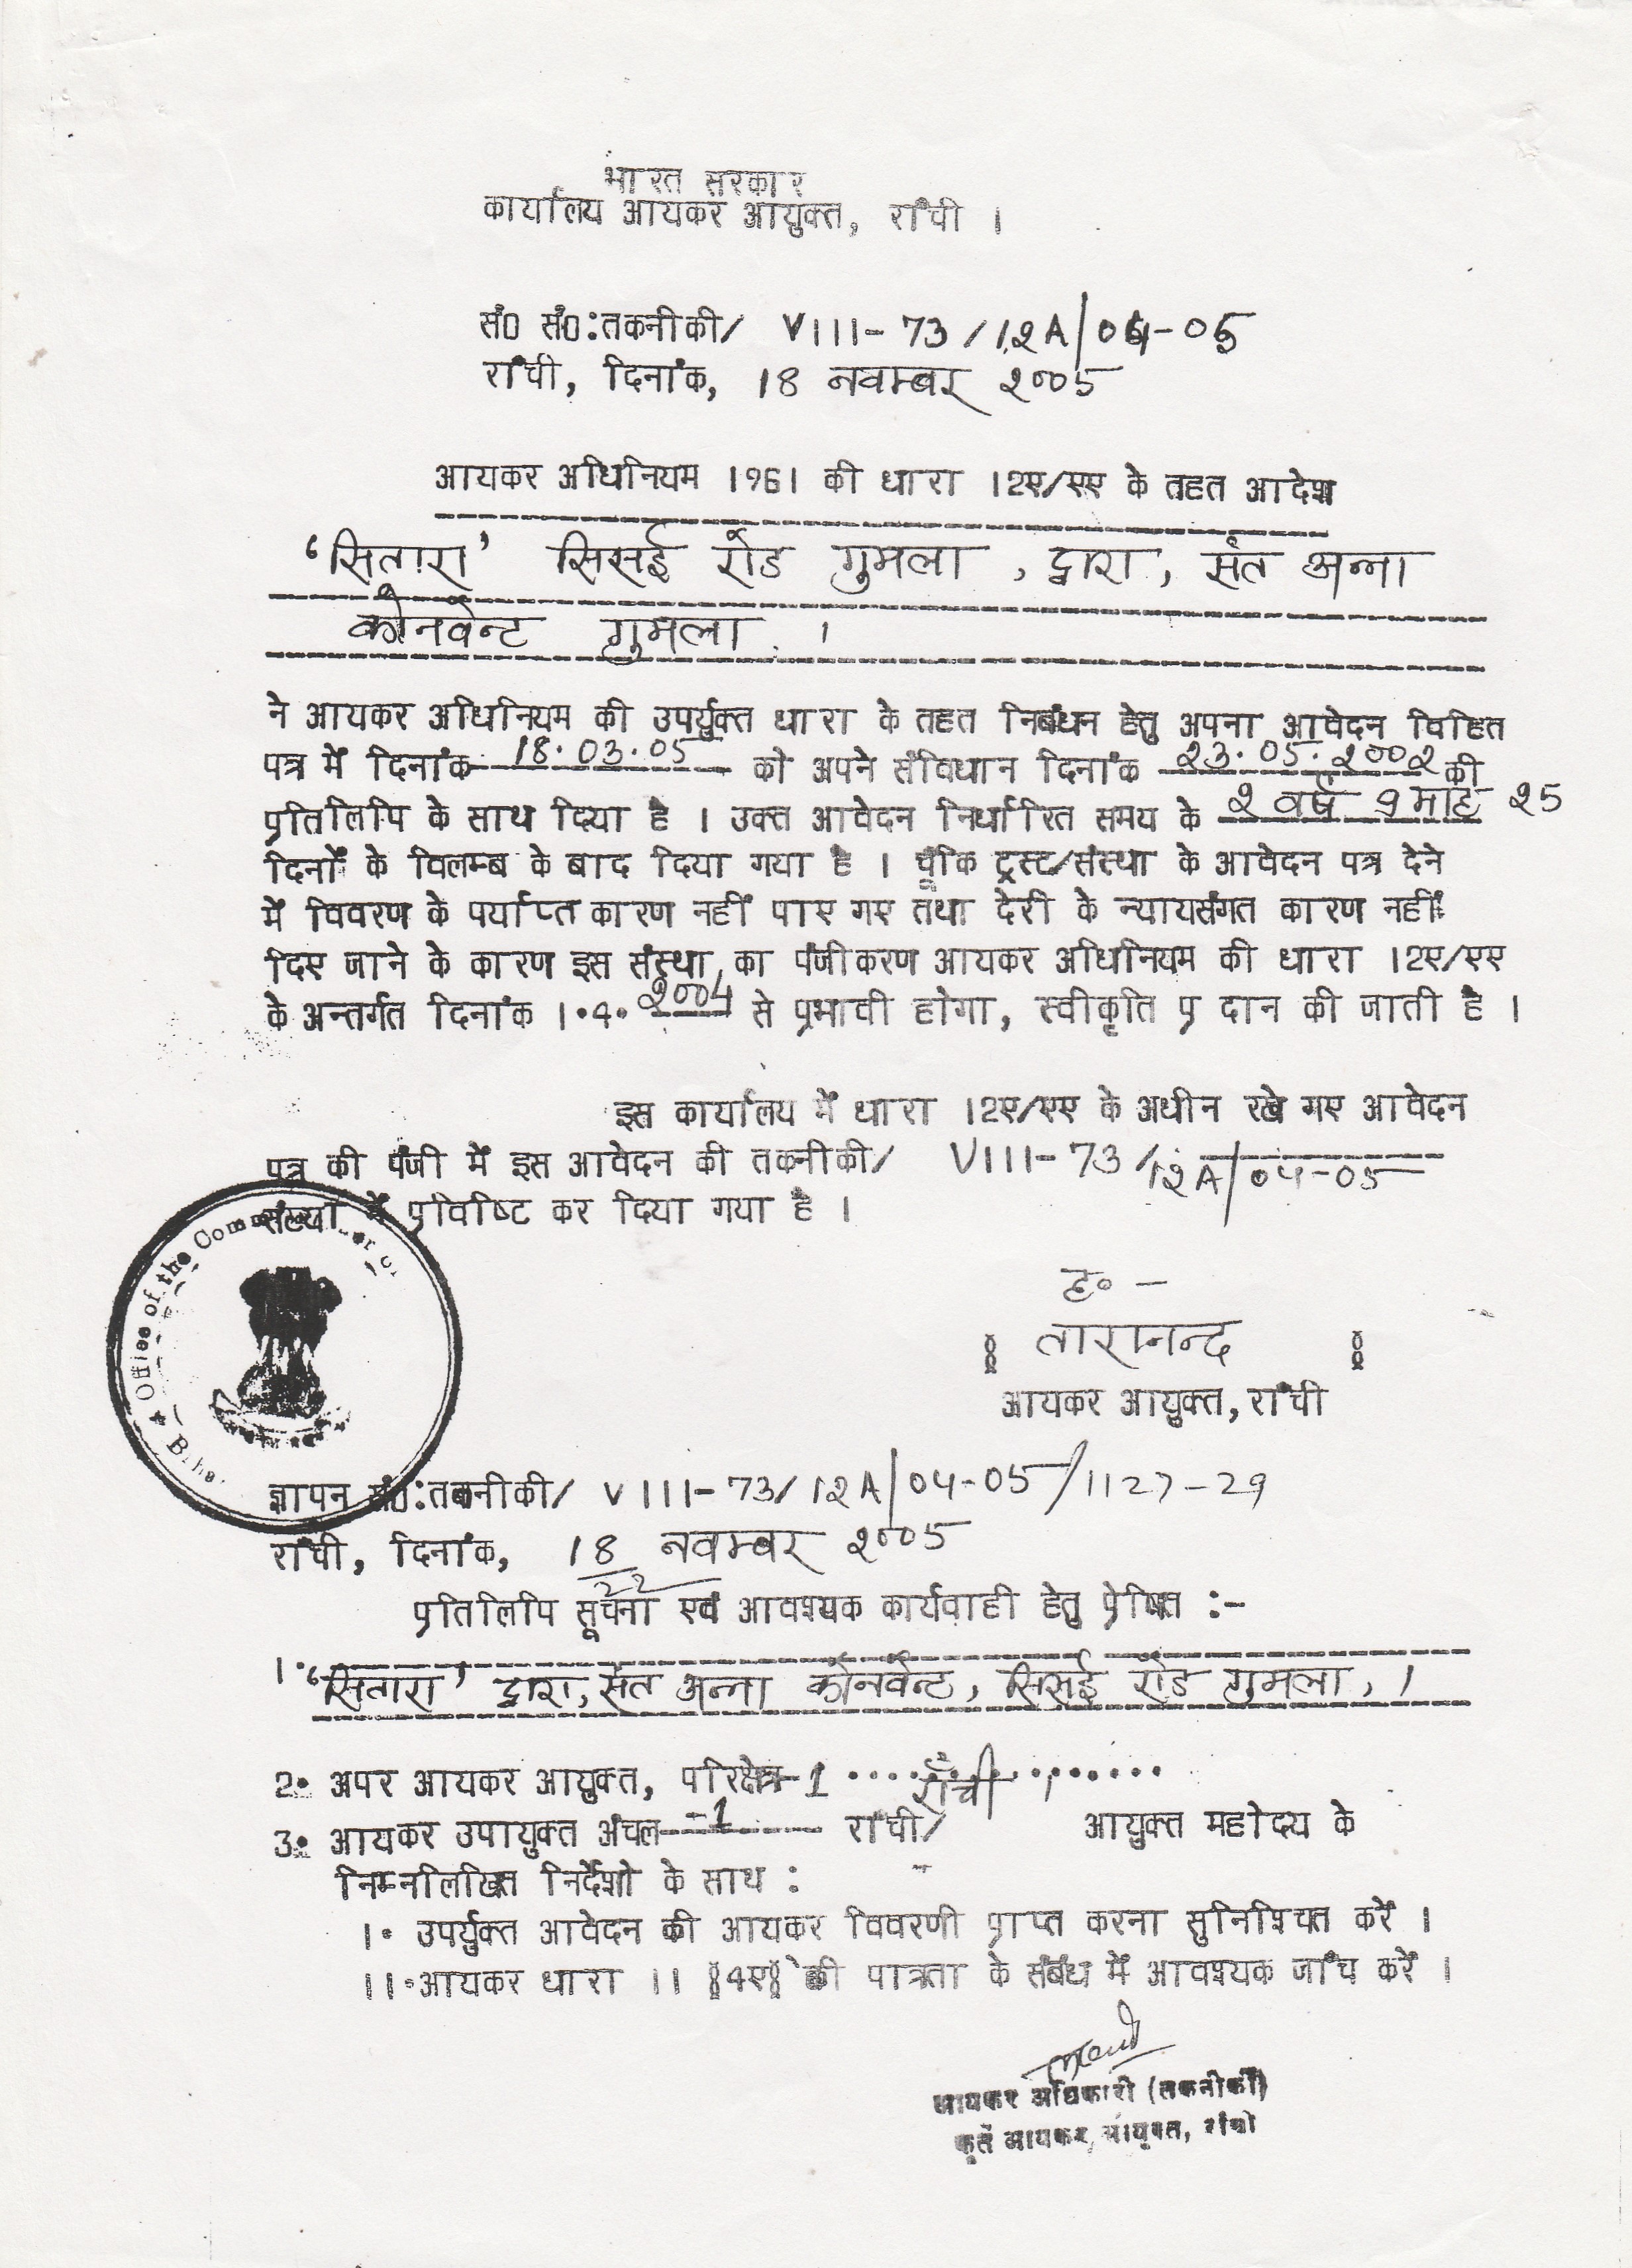 भारत सरकार
कार्यालय आयकर आयुक्त, राँची ।
सं0 सं0:तकनीकी/ VIII-73/12A/04-05
राँची, दिनांक, 18 नवम्बर 2005
आयकर अधिनियम 1961 की धारा 12ए/एए के तहत आदेश
'सितारा' सिसई रोड गुमला, द्वारा, संत अन्ना
कॉनवेन्ट गुमला ।
ने आयकर अधिनियम की उपर्युक्त धारा के तहत निबंधन हेतु अपना आवेदन विहित
पत्र में दिनांक 18.03.05 को अपने संविधान दिनांक 23.05.2002 की
प्रतिलिपि के साथ दिया है । उक्त आवेदन निर्धारित समय के 2 वर्ष 9 माह 25
दिनों के विलम्ब के बाद दिया गया है । चूँकि ट्रस्ट/संस्था के आवेदन पत्र देने
में विवरण के पर्याप्त कारण नहीं पाए गए तथा देरी के न्यायसंगत कारण नहीं
दिए जाने के कारण इस संस्था का पंजीकरण आयकर अधिनियम की धारा 12ए/एए
के अन्तर्गत दिनांक 1.4.2004 से प्रभावी होगा, स्वीकृति प्रदान की जाती है ।
इस कार्यालय में धारा 12ए/एए के अधीन रखे गए आवेदन
पत्र की पंजी में इस आवेदन की तकनीकी/ VIII-73/12A/04-05
संख्या में प्रविष्टि कर दिया गया है ।
Office of the
ह० -
तारानन्द
आयकर आयुक्त, राँची
ज्ञापन सं0:तकनीकी/ VIII-73/12A/04-05/1127-29
राँची, दिनांक, 18 नवम्बर 2005
22
प्रतिलिपि सूचना एवं आवश्यक कार्यवाही हेतु प्रेषित :-
1. 'सितारा' द्वारा, संत अन्ना कॉनवेन्ट, सिसई रोड गुमला, ।
2. अपर आयकर आयुक्त, परिक्षेत्र-1 राँची ।
3. आयकर उपायुक्त अंचल -1 राँची/ आयुक्त महोदय के
निम्नलिखित निर्देशो के साथ :
1. उपर्युक्त आवेदन की आयकर विवरणी प्राप्त करना सुनिश्चित करें ।
11.आयकर धारा 11 (4ए) की पात्रता के संबंध में आवश्यक जाँच करें ।
आयकर अधिकारी (तकनीकी)
कृते आयकर आयुक्त, राँची